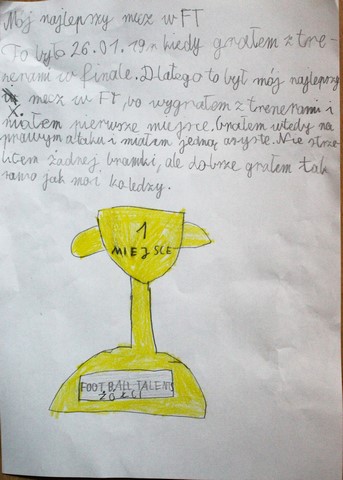 Mój najlepszy mecz w FT
To było 26.01.19.r kiedy grałem z tre-
nerami w finale. Dlatego to był mój najlepszy
mecz w FT, bo wygrałem z trenerami i
miałem pierwsze miejsce. Grałem wtedy na
prawym ataku i miałem jedną asystę. Nie strze-
liłem żadnej bramki, ale dobrze grałem tak
samo jak moi koledzy.
1
MIEJSCE
FOOTBALL TALENTS
ŻÓŁCI